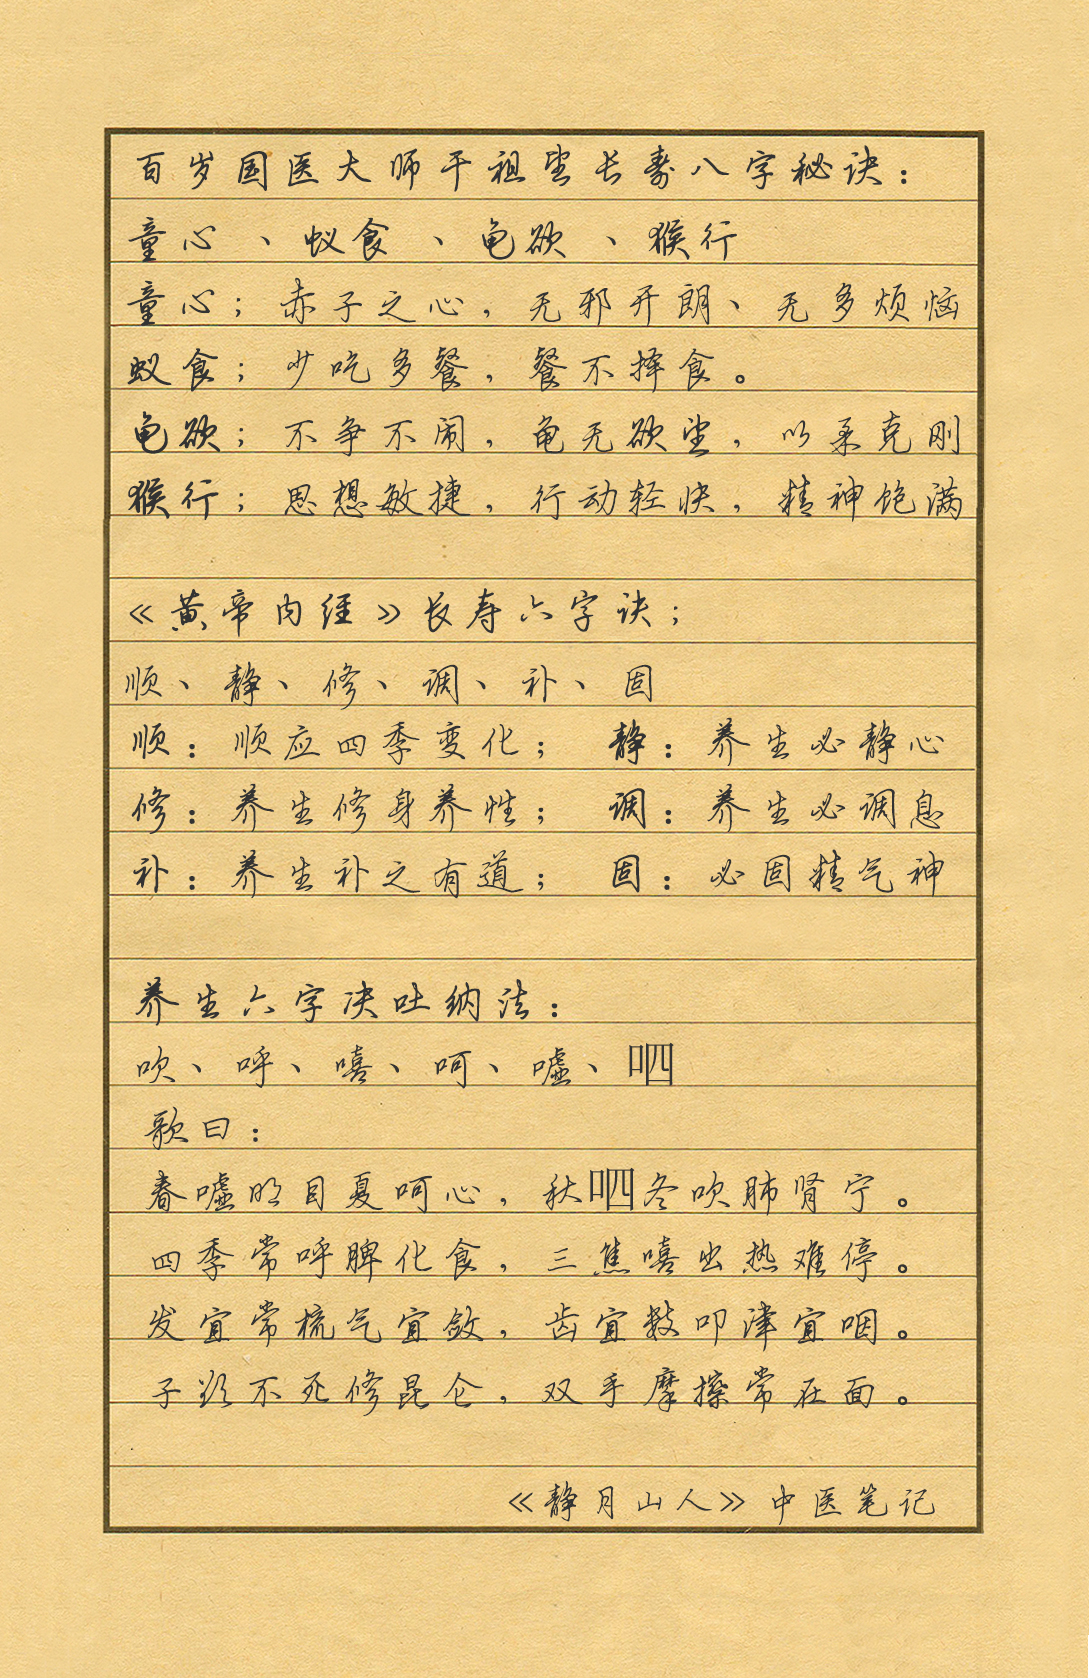 百岁国医大师干祖望长寿八字秘诀：
童心、蚁食、龟欲、猴行
童心；赤子之心，无邪开朗、无多烦恼
蚁食；少吃多餐，餐不择食。
龟欲；不争不闹，龟无欲望，以柔克刚
猴行；思想敏捷，行动轻快，精神饱满
《黄帝内经》长寿六字诀；
顺、静、修、调、补、固
顺：顺应四季变化； 静：养生必静心
修：养生修身养性； 调：养生必调息
补：养生补之有道； 固：必固精气神
养生六字决吐纳法：
吹、呼、嘻、呵、嘘、呬
歌曰：
春嘘明目夏呵心，秋呬冬吹肺肾宁。
四季常呼脾化食，三焦嘻出热难停。
发宜常梳气宜敛，齿宜数叩津宜咽。
子欲不死修昆仑，双手摩擦常在面。
《静月山人》中医笔记